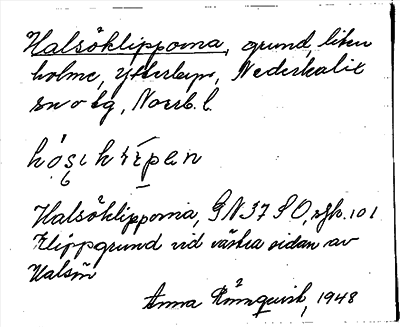 Halsöklipporna, grund, liten
holme, Ytterbyn, Nederkalix
sn o tg, Norrb. l.
Halsöklipporna, GN 37 SO, sjk. 101
Klippgrund vid västra sidan av
Halsön
Anna Rönnquist, 1948